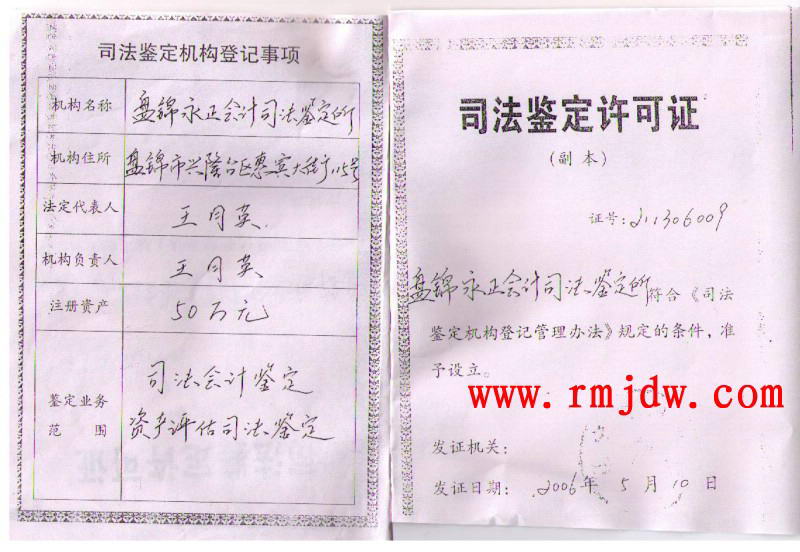 司法鉴定机构登记事项
机构名称 盘锦永正会计司法鉴定所
机构住所 盘锦市兴隆台区惠宾大街115号
法定代表人 王月英
机构负责人 王月英
注册资产 50万元
鉴定业务范围 司法会计鉴定
资产评估司法鉴定
司法鉴定许可证
(副本)
证号:211306009
盘锦永正会计司法鉴定所符合《司法
鉴定机构登记管理办法》规定的条件,准
予设立。
www.rmjdw.com
发证机关:
发证日期: 2006年5月10日